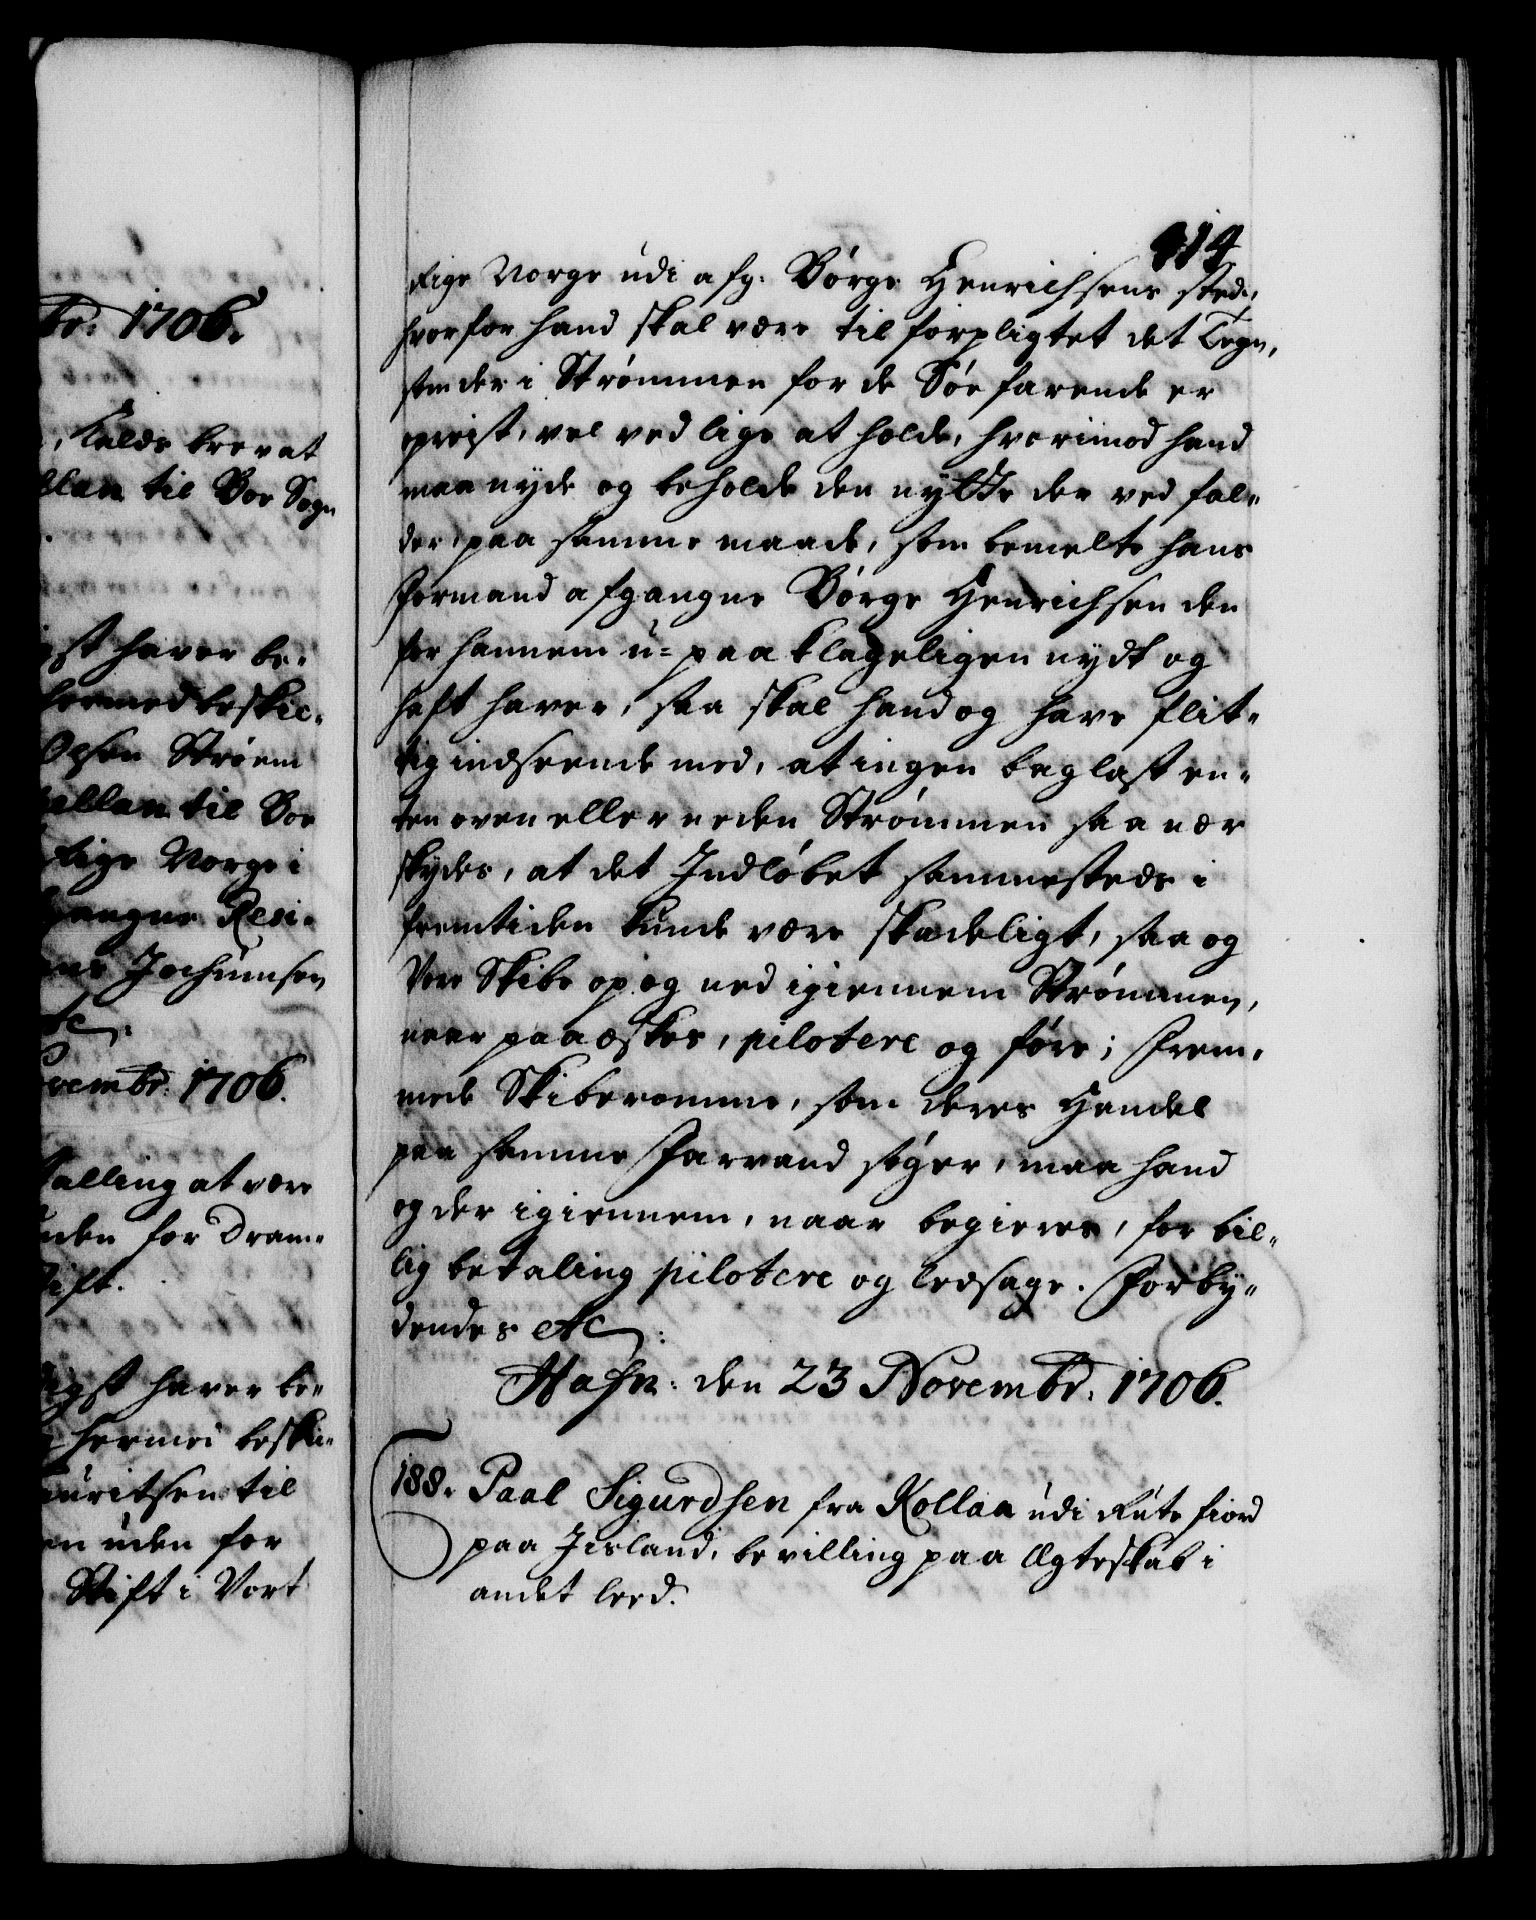 br: 1706.
, Kalds brev at
llan til Vor Sogn
gst haver be-
hermed beskic-
Olsen Strøem
pellan til Vor
Rige Norge i
gangne Resi-
ens Jochumsen
etc.
ovembr. 1706.
Salling at være
nden for Dram-
Stift.
digst haver be-
hermed beskic-
auritsen til
en uden for
Stift i Vort
414
Rige Norge udi afg. Børge Henrichsens sted,
hvorfor hand skal være tilforpligtet det Tegn,
som der i Strømmen for de Søefarende er
opreist, vel ved lige at holde, hvorimod hand
maa nyde og beholde den nytte der ved fal-
der, paa samme maade, som bemelte hans
Formand afgangne Børge Henrichsen den
for hannem u-paaklageligen nydt og
haft haver, saa skal hand og have flit-
tig indseende med, at ingen baglast en-
ten oven eller neden Strømmen saa nær
skydes, at det Indløbet sammesteds i
fremtiden kunde være skadeligt, saa og
Vore Skibe op og ned igiennem Strømmen,
naar paaæskes, pilotere og føre; Frem-
mede Skiberomme, som deres Handel
paa samme Farvand søger, maa hand
og der igiennem, naar begieres, for bil-
lig betaling pilotere og ledsage. Forby-
dendes etc:
Hafn: den 23 Novembr. 1706.
188. Paal Sigurdsen fra Kollaa udi Rutefiord
paa Iisland, bevilling paa Ægteskab i
andet leed.